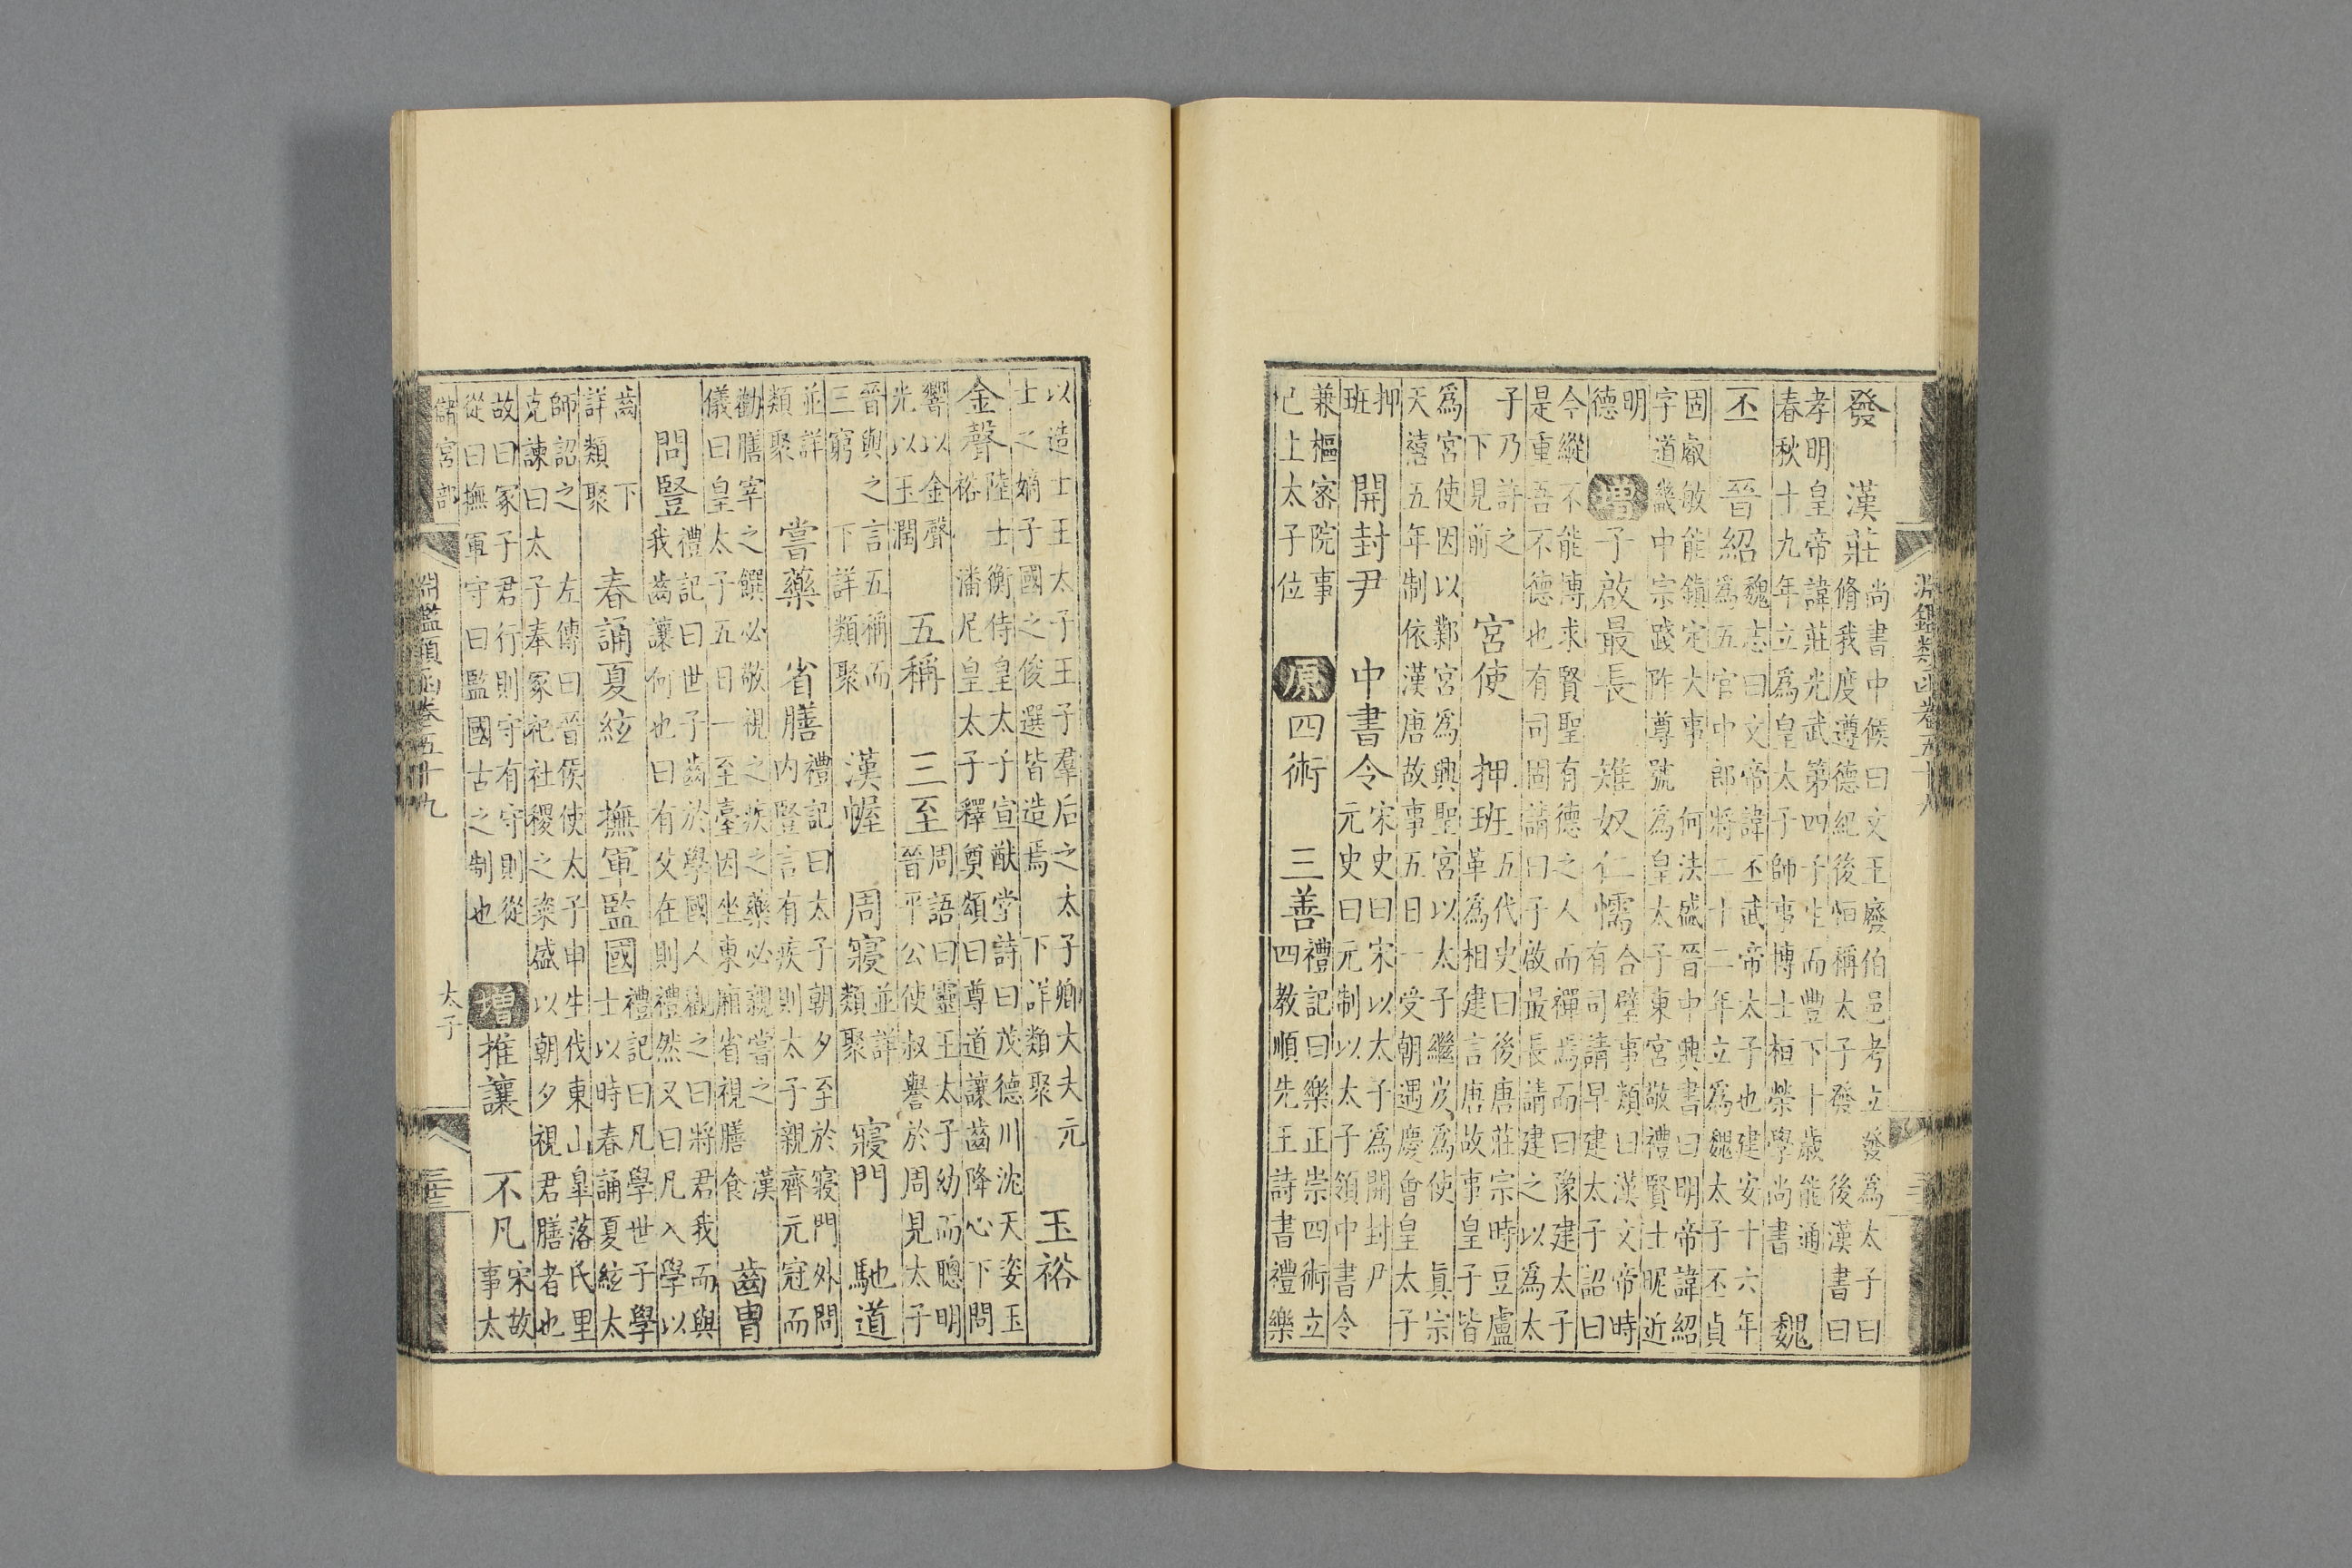 淵鑑類函卷五十八
發　漢莊
尚書中候曰文王廢伯邑考立發爲太子曰
脩我度遵德紀後恒稱太子發　後漢書曰
孝明皇帝諱莊光武第四子生而豐下十歲能通
春秋十九年立爲皇太子師事博士桓榮學尚書　魏
丕　晉紹
魏志曰文帝諱丕武帝太子也建安十六年
爲五官中郎將二十二年立爲魏太子丕貞
固嶷敏能鎮定大事　何法盛晉中興書曰明帝諱紹
字道畿中宗踐阼尊號爲皇太子東宮敬禮賢士昵近
明
德　增子啟最長　雉奴仁懦
合璧事類曰漢文帝時
有司請早建太子詔曰
今縱不能博求賢聖有德之人而禪焉而曰豫建太子
是重吾不德也有司固請曰子啟最長請建之以爲太
子乃許之
下見前　宮使　押班
五代史曰後唐莊宗時豆盧
革爲相建言唐故事皇子皆
爲宮使因以鄴宮爲興聖宮以太子繼岌爲使　眞宗
天禧五年制依漢唐故事五日一受朝遇慶會皇太子
押
班　開封尹　中書令
宋史曰宋以太子爲開封尹
元史曰元制以太子領中書令
兼樞密院事
已上太子位　原四術　三善
禮記曰樂正崇四術立
四教順先王詩書禮樂
以造士王太子王子羣后之太子卿大夫元
士之嫡子國之俊選皆造焉　下詳類聚　玉裕
金聲
陸士衡侍皇太子宣猷堂詩曰茂德川沈天姿玉
裕　潘尼皇太子釋奠頌曰尊道讓齒降心下問
響以金聲
光以玉潤　五稱　三至
周語曰靈王太子幼而聰明
晉平公使叔譽於周見太子
晉與之言五稱而
三窮　下詳類聚　漢幄　周寢
並詳
類聚　寢門　馳道
並詳
類聚　嘗藥　省膳
禮記曰太子朝夕至於寢門外問
內豎言有疾則太子親齊元冠而
勸膳宰之饌必敬視之疾之藥必親嘗之　漢
儀曰皇太子五日一至臺因坐東廂省視膳食　齒冑
問豎
禮記曰世子齒於學國人觀之曰將君我而與
我齒讓何也曰有父在則禮然又曰凡入學以
齒　下
詳類聚　春誦夏絃　撫軍監國
禮記曰凡學世子學
士以時春誦夏絃太
師詔之　左傳曰晉侯使太子申生伐東山臯落氏里
克諫曰太子奉冢祀社稷之粢盛以朝夕視君膳者也
故曰冢子君行則守有守則從
從曰撫軍守曰監國古之制也　增推讓　不凡
宋故
事太
儲宮部　淵鑑類函卷五十九　太子